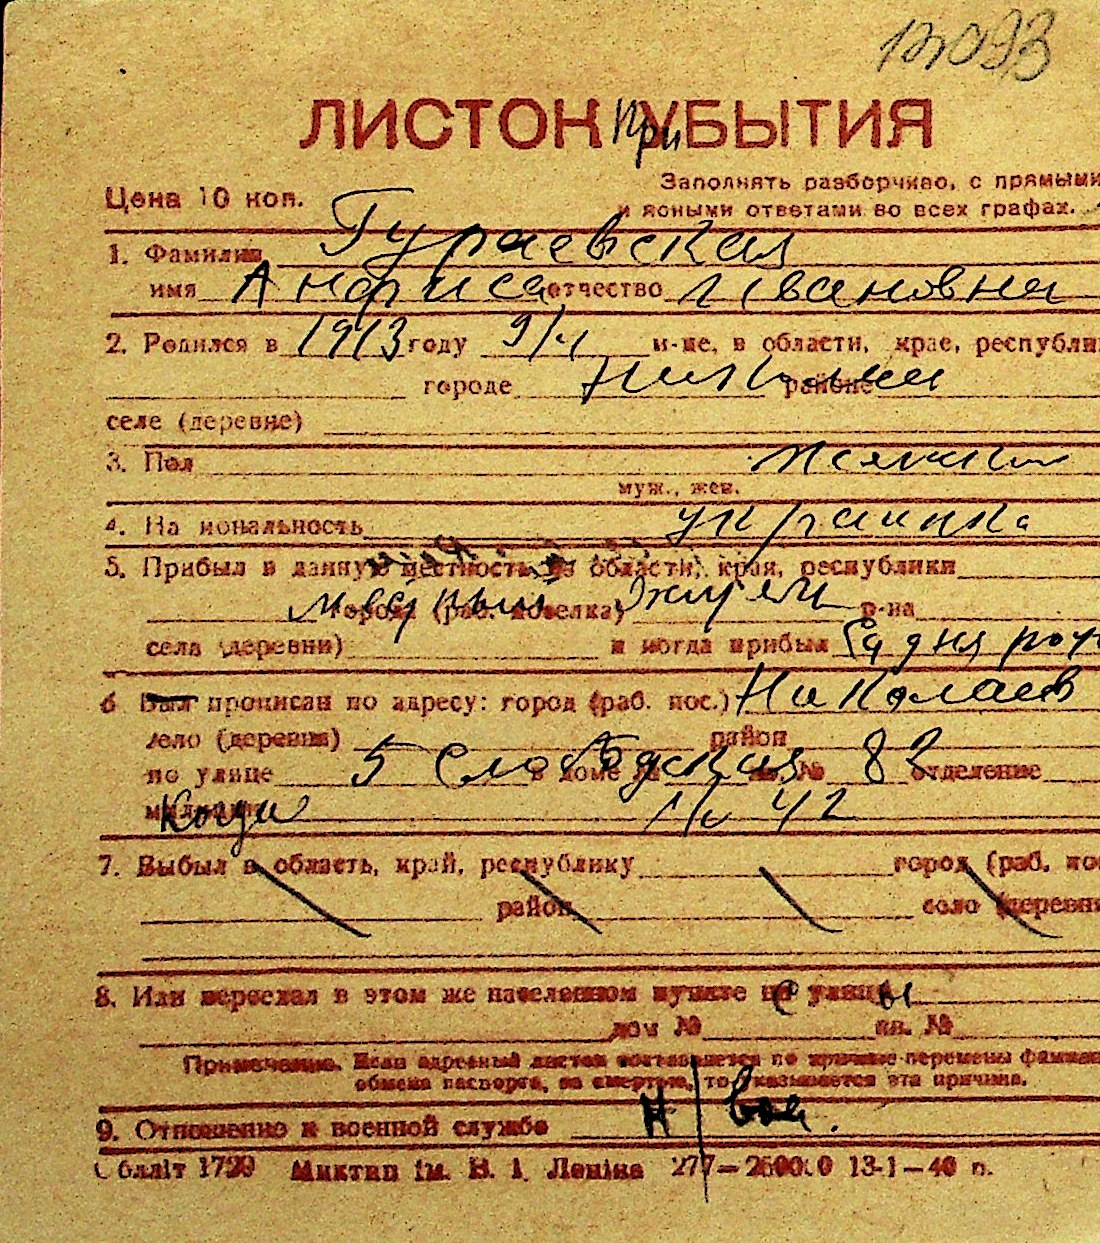 13093
ЛИСТОК УБЫТИЯ При
Цена 10 коп.
Заполнять разборчиво, с прямыми
и ясными ответами во всех графах.
1. Фамилия Гураевская
имя Анфиса отчество Ивановна
2. Родился в 1913 году 9/ м-це, в области, крае, республи
городе районе
селе (деревне)
3. Пол
муж., жен.
4. На иональность украинка
5. Прибыл в данную местность из области, края, республики
Местный житель города (раб. поселка) р-на
села (деревни) и когда прибыл Со дня рож
6 Был прописан по адресу: город (раб. пос.) Николаев
село (деревня) район
по улице 5 Слободская в доме № кв. № 82 отделение
милиции Когда 42
7. Выбыл в область, край, республику город (раб. пос
район село (деревня
8. Или переехал в этом же населенном пункте на улицу
дом № кв. №
Примечание. Если адресный листок составляется по причине перемены фамили
обмена паспорта, за смертью, то указывается эта причина.
9. Отношение к военной службе Н/воен.
Облліт 1729 Миктип ім. В. І. Леніна 277—25000.0 13-1—40 п.